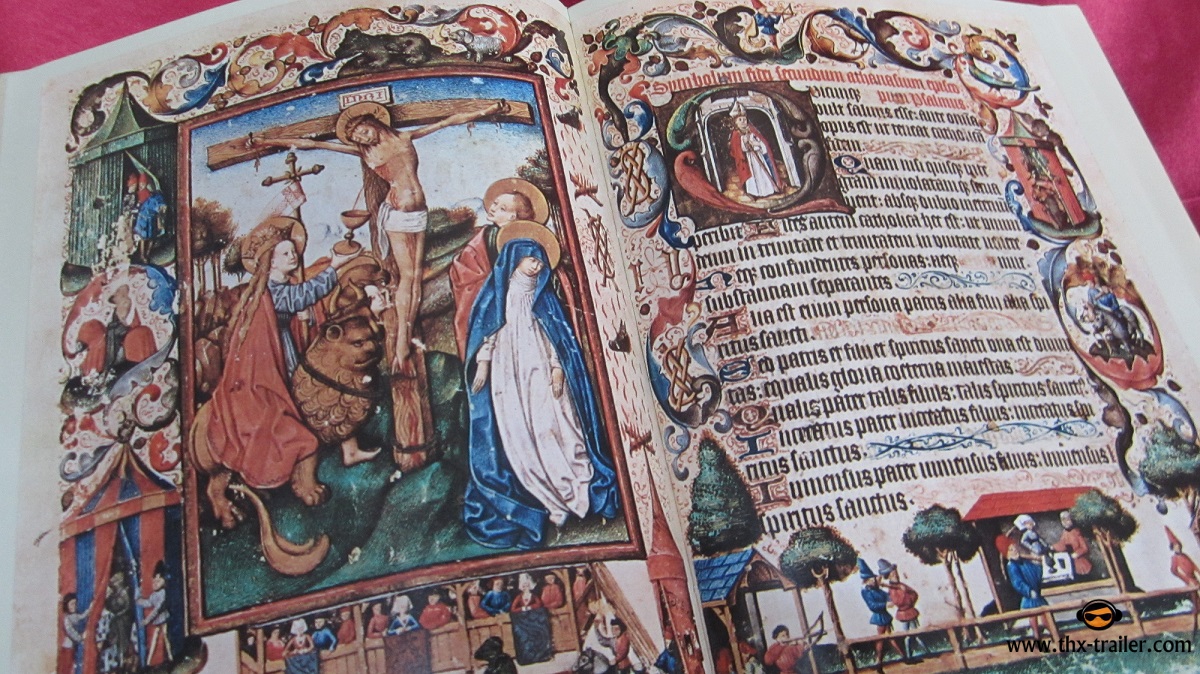 INRI
Simbolum fidei secundum athanasium episco
pum Psalmus
uicunq
uult saluus esse: ante omia
opus est ut teneat catholica
fidem
Quam nisi quisq
absq dubio in eternu
peribit
Fides autem catholica hec est: ut unum
deum in trinitate et trinitatem in unitate
Neq confundentes personas: neq
substantiam separantes
Alia est enim persona patris alia filii alia spi
ritus sancti
Sed patris et filii et spiritus sancti una est diuini
tas: equalis gloria coeterna maiestas
Qualis pater talis filius: talis spiritus sanct
Increatus pater increatus filius: increatus spi
ritus sanctus
Inmensus pater inmensus filius: inmensus
spiritus sanctus
www.thx-trailer.com